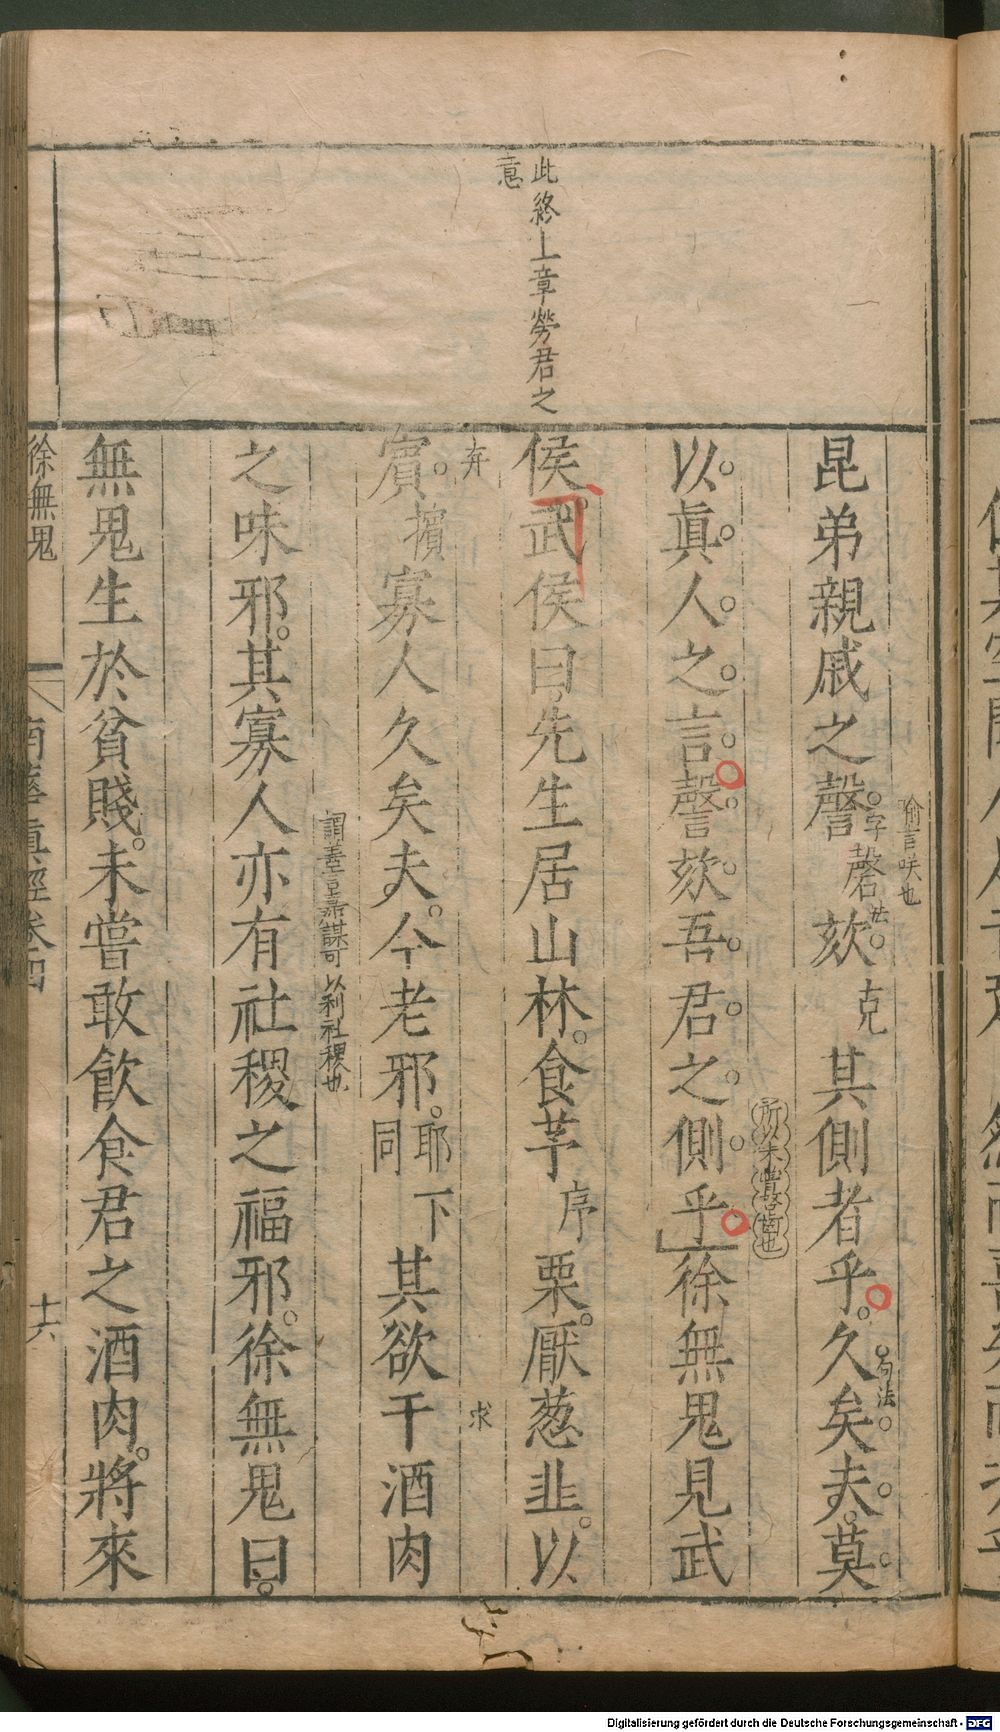 此終上章勞君之
意
昆弟親戚之謦字 磬法欬克其側者乎久矣夫莫
喻言咲也
句法
以真人之言謦欬吾君之側乎徐無鬼見武
所未嘗啓也
侯武侯曰先生居山林食芧序栗厭葱韭以
賔擯寡人久矣夫今老邪耶下同其欲干酒肉
弃
求
之味邪其寡人亦有社稷之福邪徐無鬼曰
謂善言嘉謀可以利社稷也
無鬼生於貧賤未嘗敢飲食君之酒肉將來
徐無鬼
南華真經卷四
十六
Digitalisierung gefördert durch die Deutsche Forschungsgemeinschaft - DFG